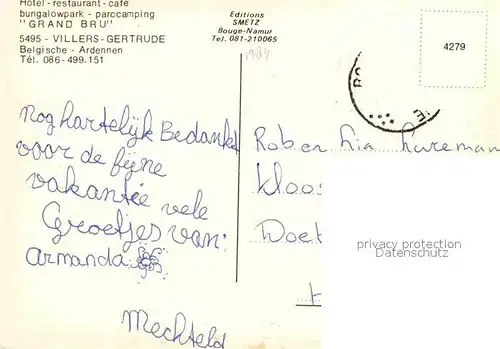 Hôtel - restaurant - café
bungalowpark - parccamping
"GRAND BRU"
5495 - VILLERS-GERTRUDE
Belgische - Ardennen
Tél. 086-499.151
Editions
SMETZ
Bouge-Namur
Tel. 081-210065
1984
4279
Nog hartelijk Bedankt
voor de fijne
vakantie vele
Groetjes van:
Armanda
Mechteld
Rob en Lia
Kloos
Doet
privacy protection
Datenschutz